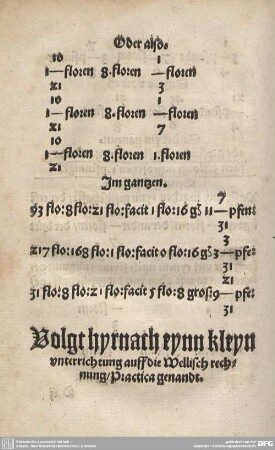 Oder also.
10 1
1—floren 8.floren —floren
21 3
10 1
1—floren 8.floren —floren
21 7
10
1—floren 8.floren 1.floren
21
Im gantzen.
7
93 flo:8 flo:21 flo:facit 1 flo:16 gš 11—pfen:
31
3
217 flo:168 flo:1 flo:facit 0 flo:16 gš 3—pfen:
31
21
31 flo:8 flo:21 flo:facit 5 flo:8 gros:9—pfen:
31
Volgt hyrnach eynn kleyn
vnterrichtung auff die Wellisch rech-
nung/Practica genandt.